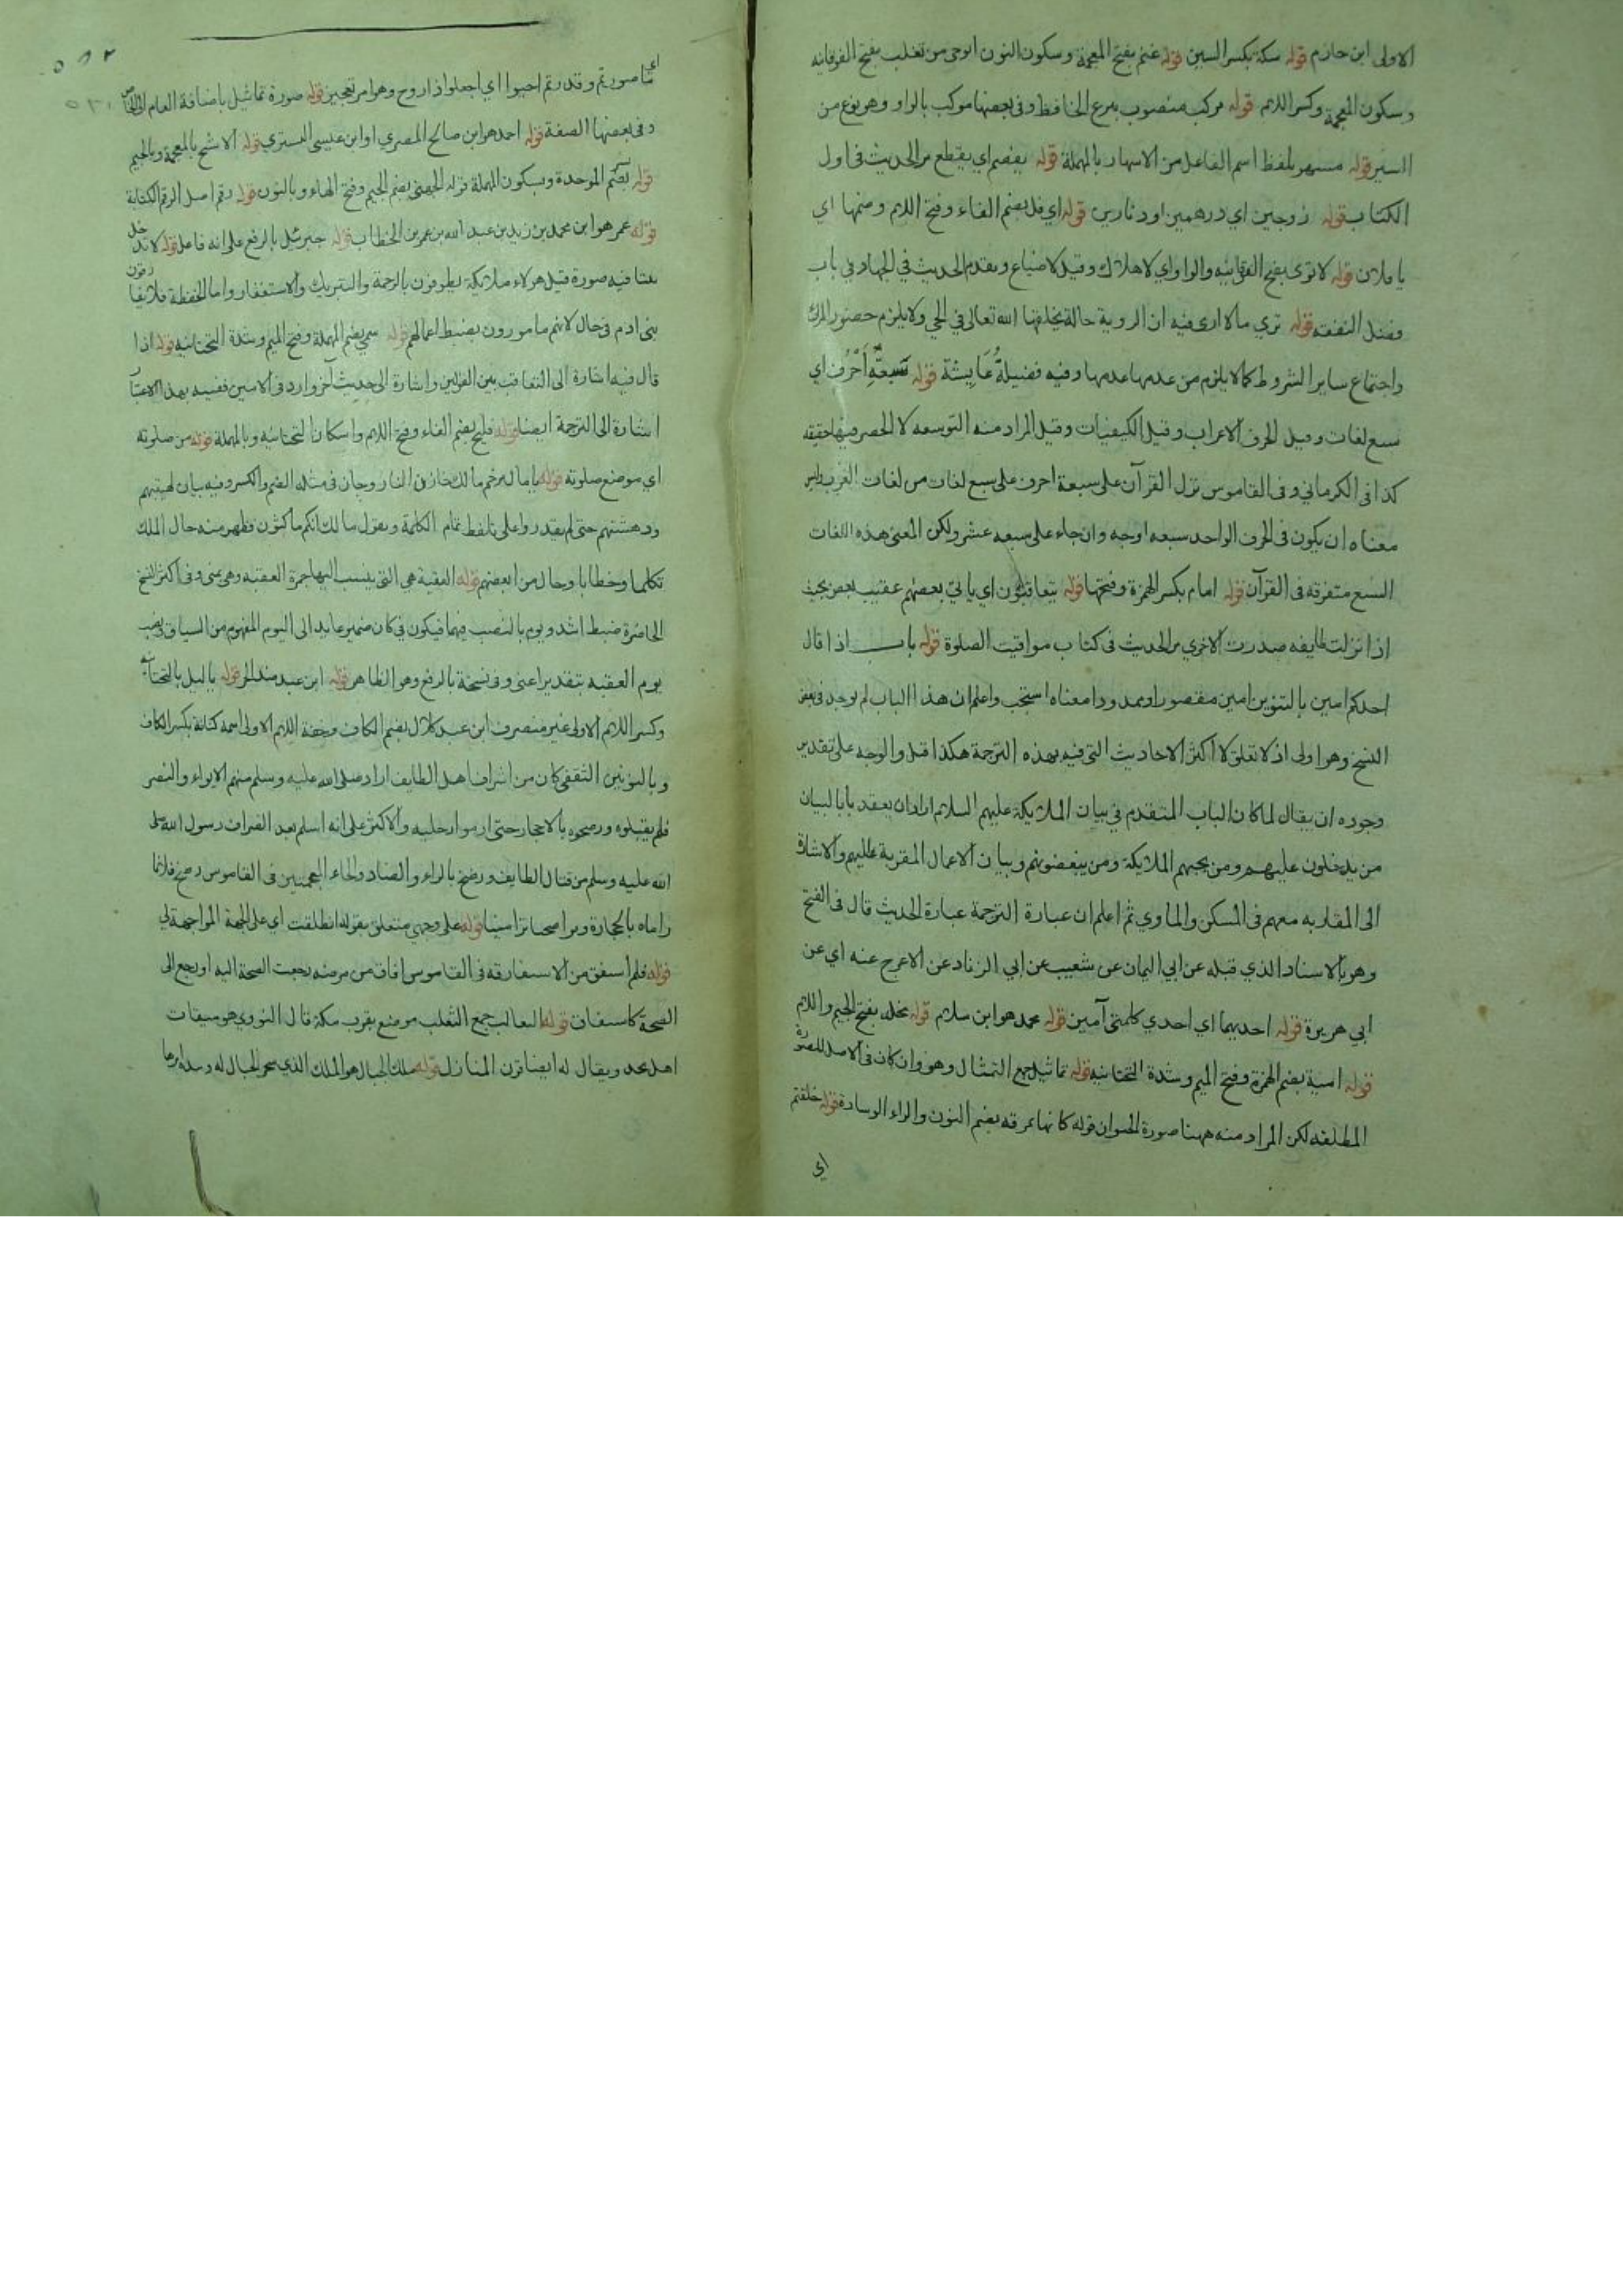 الاولى ابن حازم قوله سكة بكسر السين قوله غنم بفتح المعجمة وسكون النون ابوحي من تغلب بفتح الفوقانيه
وسكون المعجمة وكسر اللام قوله مركب منصوب بنزع الخافظ وفي بعضها موكب بالواو وهو نوع من
السير قوله مسهر بلفظ اسم الفاعل من الاسهار بالمهملة قوله يفصم اي يقطع مر الحديث في اول
الكتاب قوله زوجين اي درهمين او دنارين قوله اي فل بضم الفاء وفتح اللام وضمها اي
يا فلان قوله لا توى بفتح الفوقانيه والواو اي لا هلاك وقيل لا ضياع وتقدم الحديث في الجهاد في باب
وفضل النفقه قوله تري مالا ارى فيه ان الروية حالة يخلقها الله تعالى في الحي ولا يلزم حضور المرئ
واجتماع ساير الشروط كما لا يلزم من عدمها عدمها وفيه فضيلة عايشة قوله سبعة احرف اي
سبع لغات وقيل الحرف الاعراب وقيل الكيفيات وقيل المراد منه التوسعه لا الحصر فيها حقيقه
كذا في الكرماني وفي القاموس نزل القرآن على سبعة احرف على سبع لغات من لغات العرب وليس
معناه ان يكون في الحرف الواحد سبعه اوجه وان جاء على سبعه عشر ولكن المعنى هذه اللغات
السبع متفرقه في القرآن قوله امام بكسر الهمزة وفتحها قوله يتعاقبون اي ياتي بعضهم عقيب بعض بحيث
اذا نزلت طايفه صدرت الاخري مر الحديث في كتاب مواقيت الصلوة قوله باب اذا قال
احدكم امين بالتنوين امين مقصورا وممدودا معناه استجب واعلم ان هذا الباب لم يوجد في بعض
النسخ وهو اولى اذ لا تعلق لا اكثر الاحاديث التي فيه بهذه الترجمة هكذا قيل والوجه على تقدير
وجوده ان يقال لما كان الباب المتقدم في بيان الملائكة عليهم السلام اراد ان يعقد بابا لبيان
من يدخلون عليهم ومن يحبهم الملائكة ومن يبغضونهم وبيان الاعمال المقربة عليهم والاشارة
الى المقاربه معهم في المسكن والماوي ثم اعلم ان عبارة الترجمة عبارة الحديث قال في الفتح
وهو بالاسناد الذي قبله عن ابي اليمان عن شعيب عن ابي الزناد عن الاعرج عنه اي عن
ابي هريرة قوله احديهما اي احدي كلمتي آمين قوله محمد هو ابن سلام قوله مخلد بفتح الجيم واللام
قوله امية بضم الهمزة وفتح الميم وشدة التحتانيه قوله تماثيل جمع التمثال وهو وان كان في الاصل للصورة
المطلقه لكن المراد منه ههنا صورة الحيوان قوله كانها نمرقه بضم النون والراء الوسادة قوله خلقتم
اي
اي ما صورتم وقدرتم احيوا اي اجعلوا ذا روح وهو امر تعجيز قوله صورة تماثيل باضافة العام الى الخاص
وفي بعضها الصفة قوله احمد هو ابن صالح المصري او ابن عيسى التستري قوله الاشج بالمعجمة وبالجيم
قوله بضم الموحدة وسكون المهملة قوله الجهني بضم الجيم وفتح الهاء وبالنون قوله رقم اصل الرقم الكتابة
قوله عمر هو ابن محمد بن زيد بن عبد الله بن عمر بن الخطاب قوله جبرئيل بالرفع على انه فاعل قوله لا ندخل
بيتا فيه صورة قيل هولاء ملائكة يطوفون بالرحمة والتبريك والاستغفار واما الحفظة فلا يفارقون
بني ادم في حال لانهم مامورون بضبط اعمالهم قوله سمي بضم المهملة وفتح الميم وشدة التحتانيه قوله اذا
قال فيه اشارة الى التعاقب بين القولين واشارة الى حديث آخر وارد في الامين ففيه بهذا الاعتبار
اشارة الى الترجمة ايضا قوله فليح بضم الفاء وفتح اللام واسكان التحتانيه وبالمهملة قوله من صلوته
اي موضع صلوته قوله يا مال ترخيم مالك خازن النار وجاز في مثله الضم والكسر وفيه بيان لهيبتهم
ودهشتهم حتى لم يقدروا على تلفظ تمام الكلمة ويقول مالك انكم ماكثون فظهر منه حال الملك
تكلما وخطابا وحال من ابغضهم قوله العقبة هي التي ينسب اليها جمرة العقبه وهي بمنى وفي اكثر النسخ
الحاضرة ضبط اشد ويوم بالنصب فيهما فيكون في كان ضمير عايد الى اليوم المفهوم من السياق ونصب
يوم العقبه بتقدير اعني وفي نسخة بالرفع وهو الظاهر قوله ابن عبد ياليل قوله ياليل بالتحتانية
وكسر اللام الاولى غير منصرف ابن عبد كلال بضم الكاف وخفة اللام الاولى اسمه كنانة بكسر الكاف
وبالنونين الثقفي كان من اشراف اهل الطايف اراد صلى الله عليه وسلم منهم الايواء والنصر
فلم يقبلوه ورضحوه بالاحجار حتى ادموا رجليه والاكثر على انه اسلم بعد انصراف رسول الله صلى
الله عليه وسلم من قتال الطايف ورضخ بالراء والضاد والخاء المعجمتين في القاموس رضخ فلانا
راماه بالحجارة وتراضخا تراميا قوله على وجهي متعلق بقوله انطلقت اي على الجهة المواجهة لي
قوله فلم استفق من الاستفاقه في القاموس افاق من مرضه رجعت الصحة اليه او رجع الى
الصحة كاستفاق قوله الثعالب جمع الثعلب موضع بقرب مكة قال النووي هو ميقات
اهل نجد ويقال له ايضا قرن المنازل قوله ملك الجبال هو الملك الذي سخر الجبال له وبيده امرها